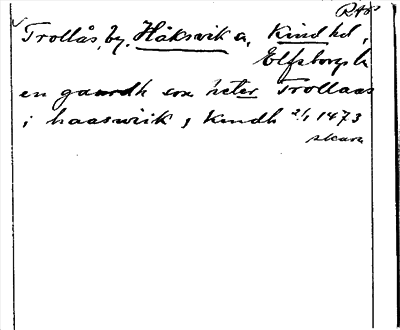 RAp
Trollås, by, Håksvik sn, Kind hd,
Elfsborgs l.
en gaardh som heter Trollaas
i haaswiik i Kendh 2/1 1473
skara